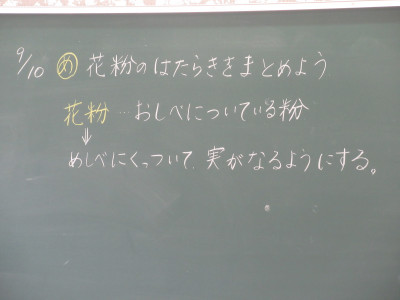 9/10 め 花粉のはたらきをまとめよう
花粉…おしべについている粉
↓
めしべにくっついて、実がなるようにする。